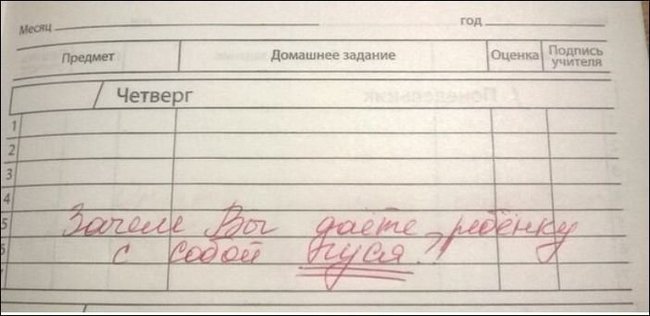 Месяц год
Предмет Домашнее задание Оценка Подпись учителя
Четверг
1
2
3
4
5 Зачем Вы даёте ребёнку
6 с собой гуся?